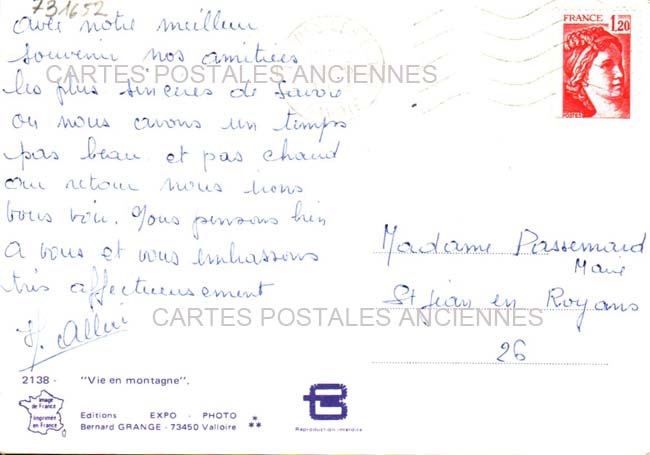 731652
avec notre meilleur
souvenir nos amitiées
CARTES POSTALES ANCIENNES
les plus sincères de Savoie
ou nous avons un temps
pas beau et pas chaud
au retour nous irons
vous voir. Nous pensons bien
a vous et vous embrassons
très affectueusement
FRANCE
1,20
POSTES
Madame Passemard
Marie
St Jean en Royans
26
CARTES POSTALES ANCIENNES
2138 - "Vie en montagne".
Image
de France
Imprimée
en France
Editions EXPO - PHOTO
Bernard GRANGE - 73450 Valloire
Reproduction interdite